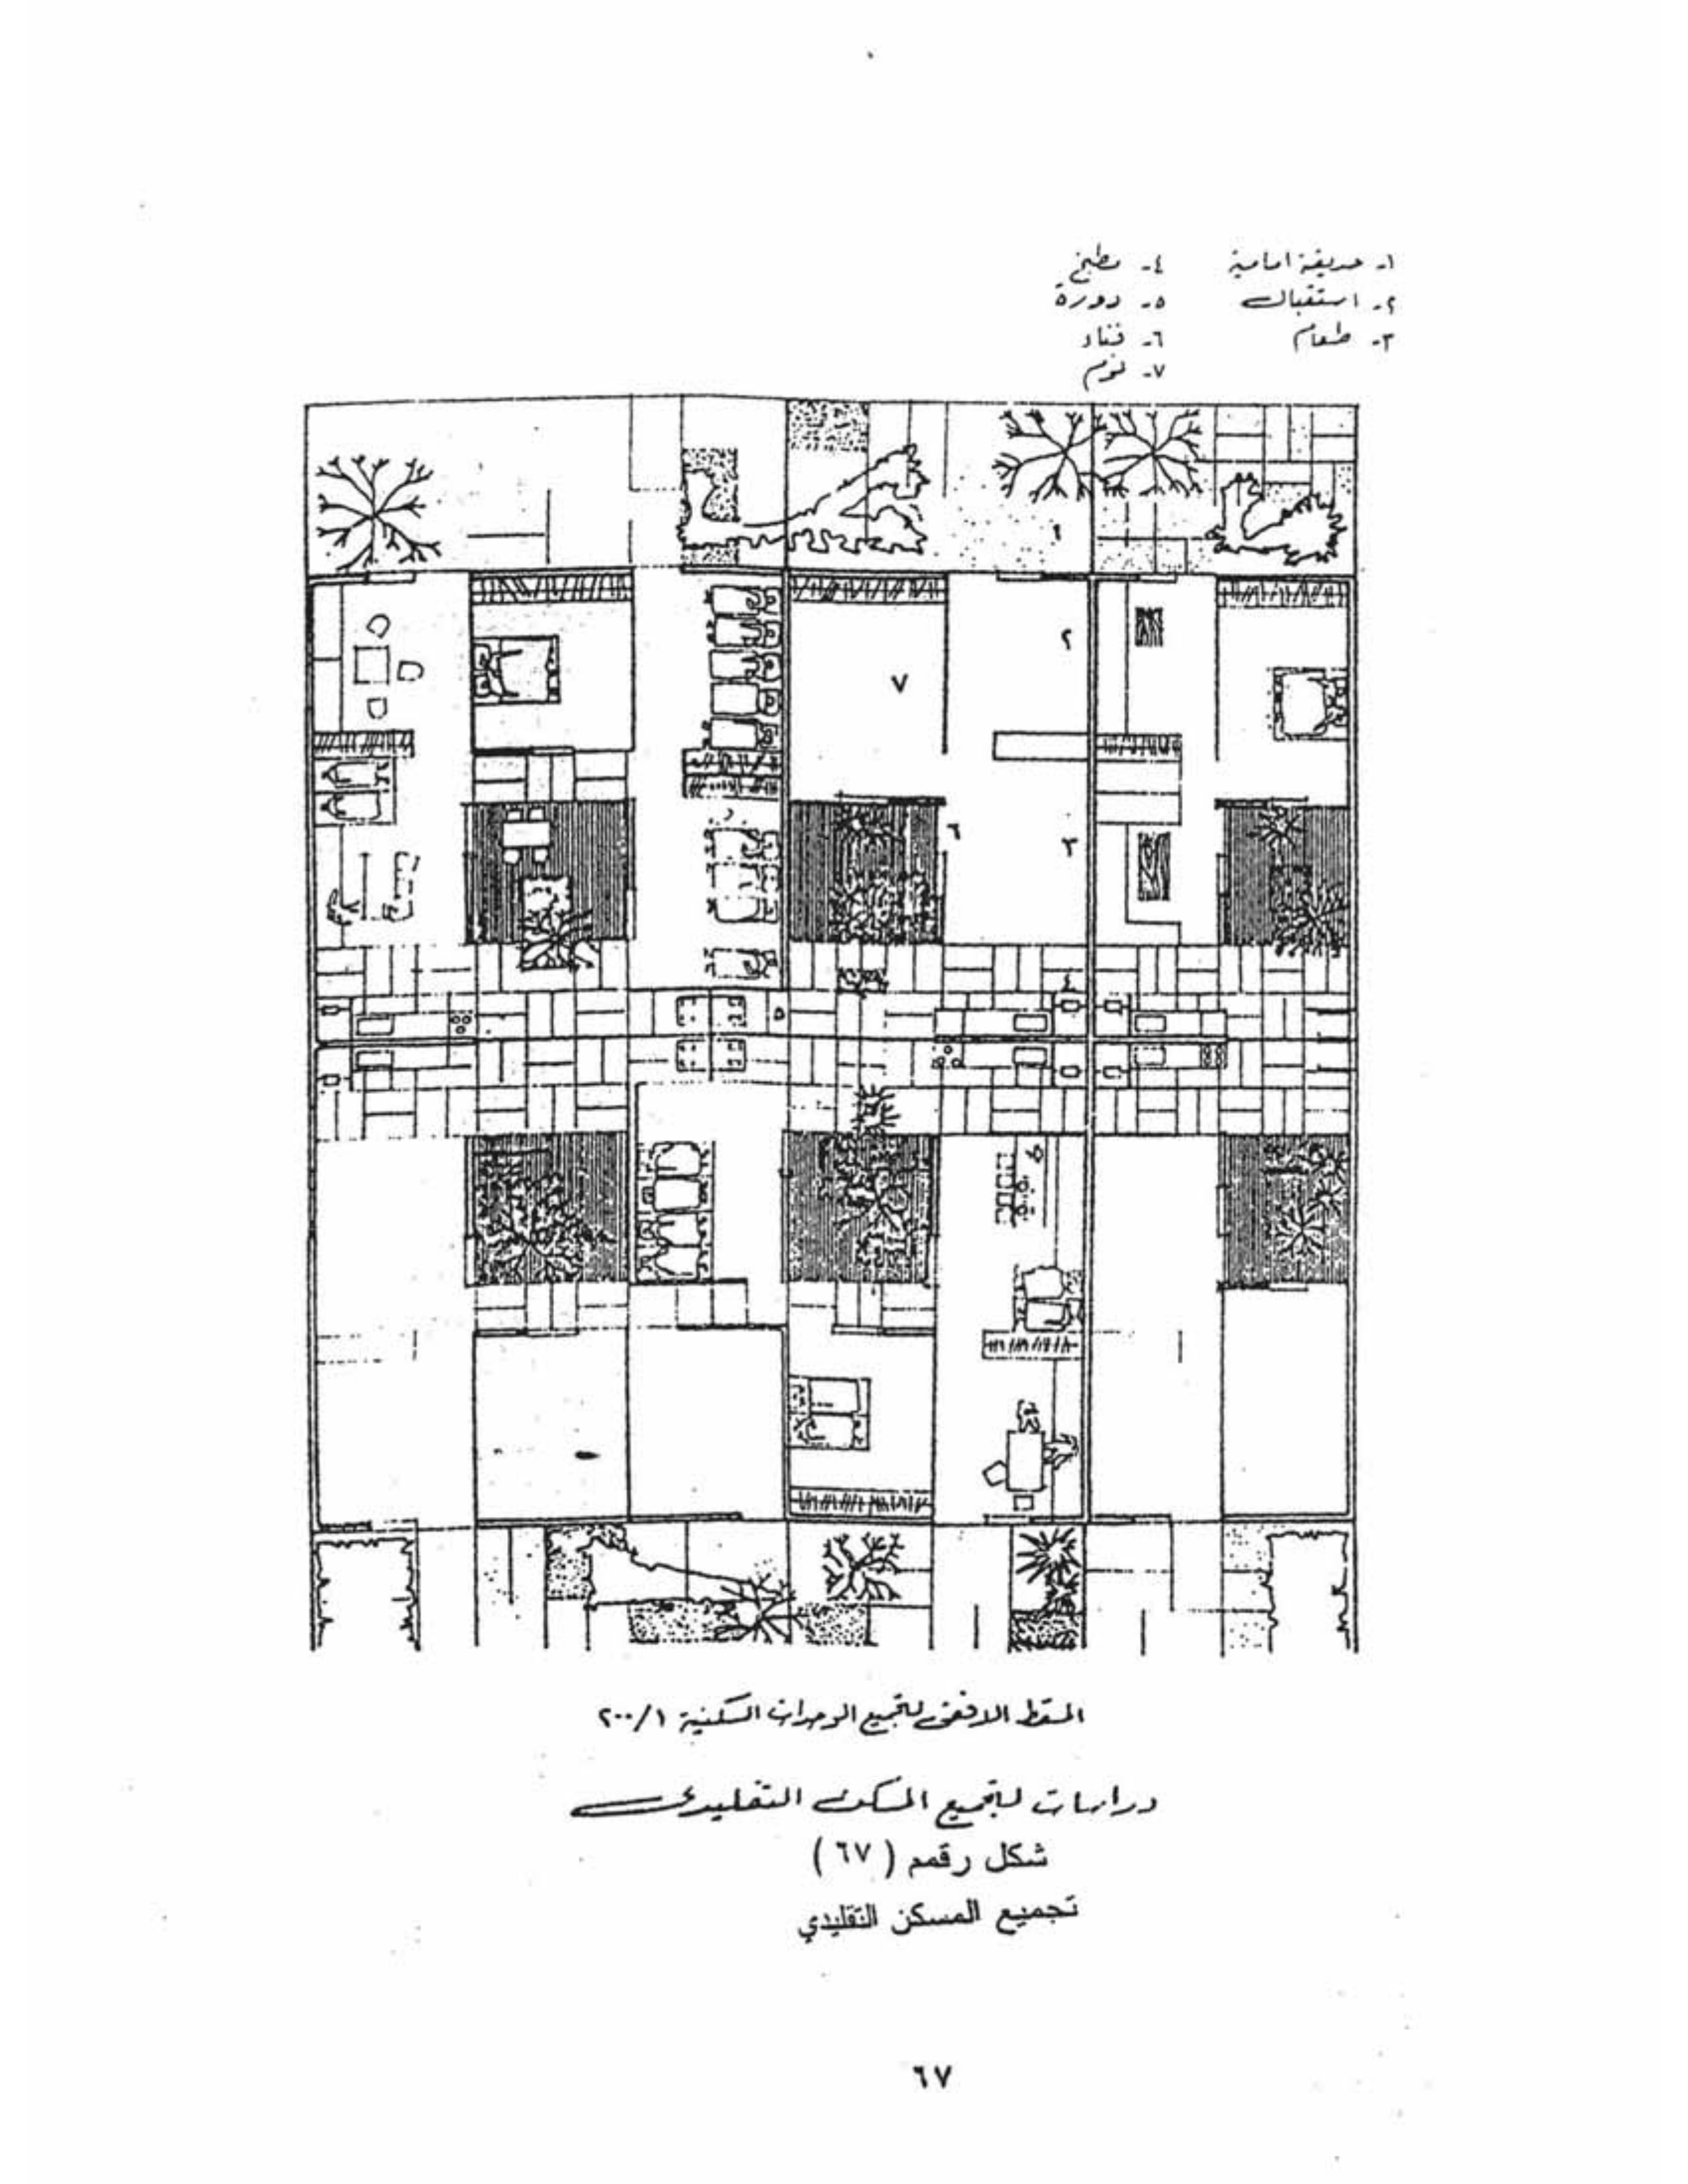 ١- حديقة امامية
٢- استقبال
٣- طعام
٤- مطبخ
٥- دورة
٦- فناء
٧- نوم
١
٢
٧
٦
٣
٤
٥
المسقط الافقى لتجميع الوحدات السكنية ٢٠٠/١
دراسات لتجميع المسكن التقليدى
شكل رقم (٦٧)
تجميع المسكن التقليدي
٦٧